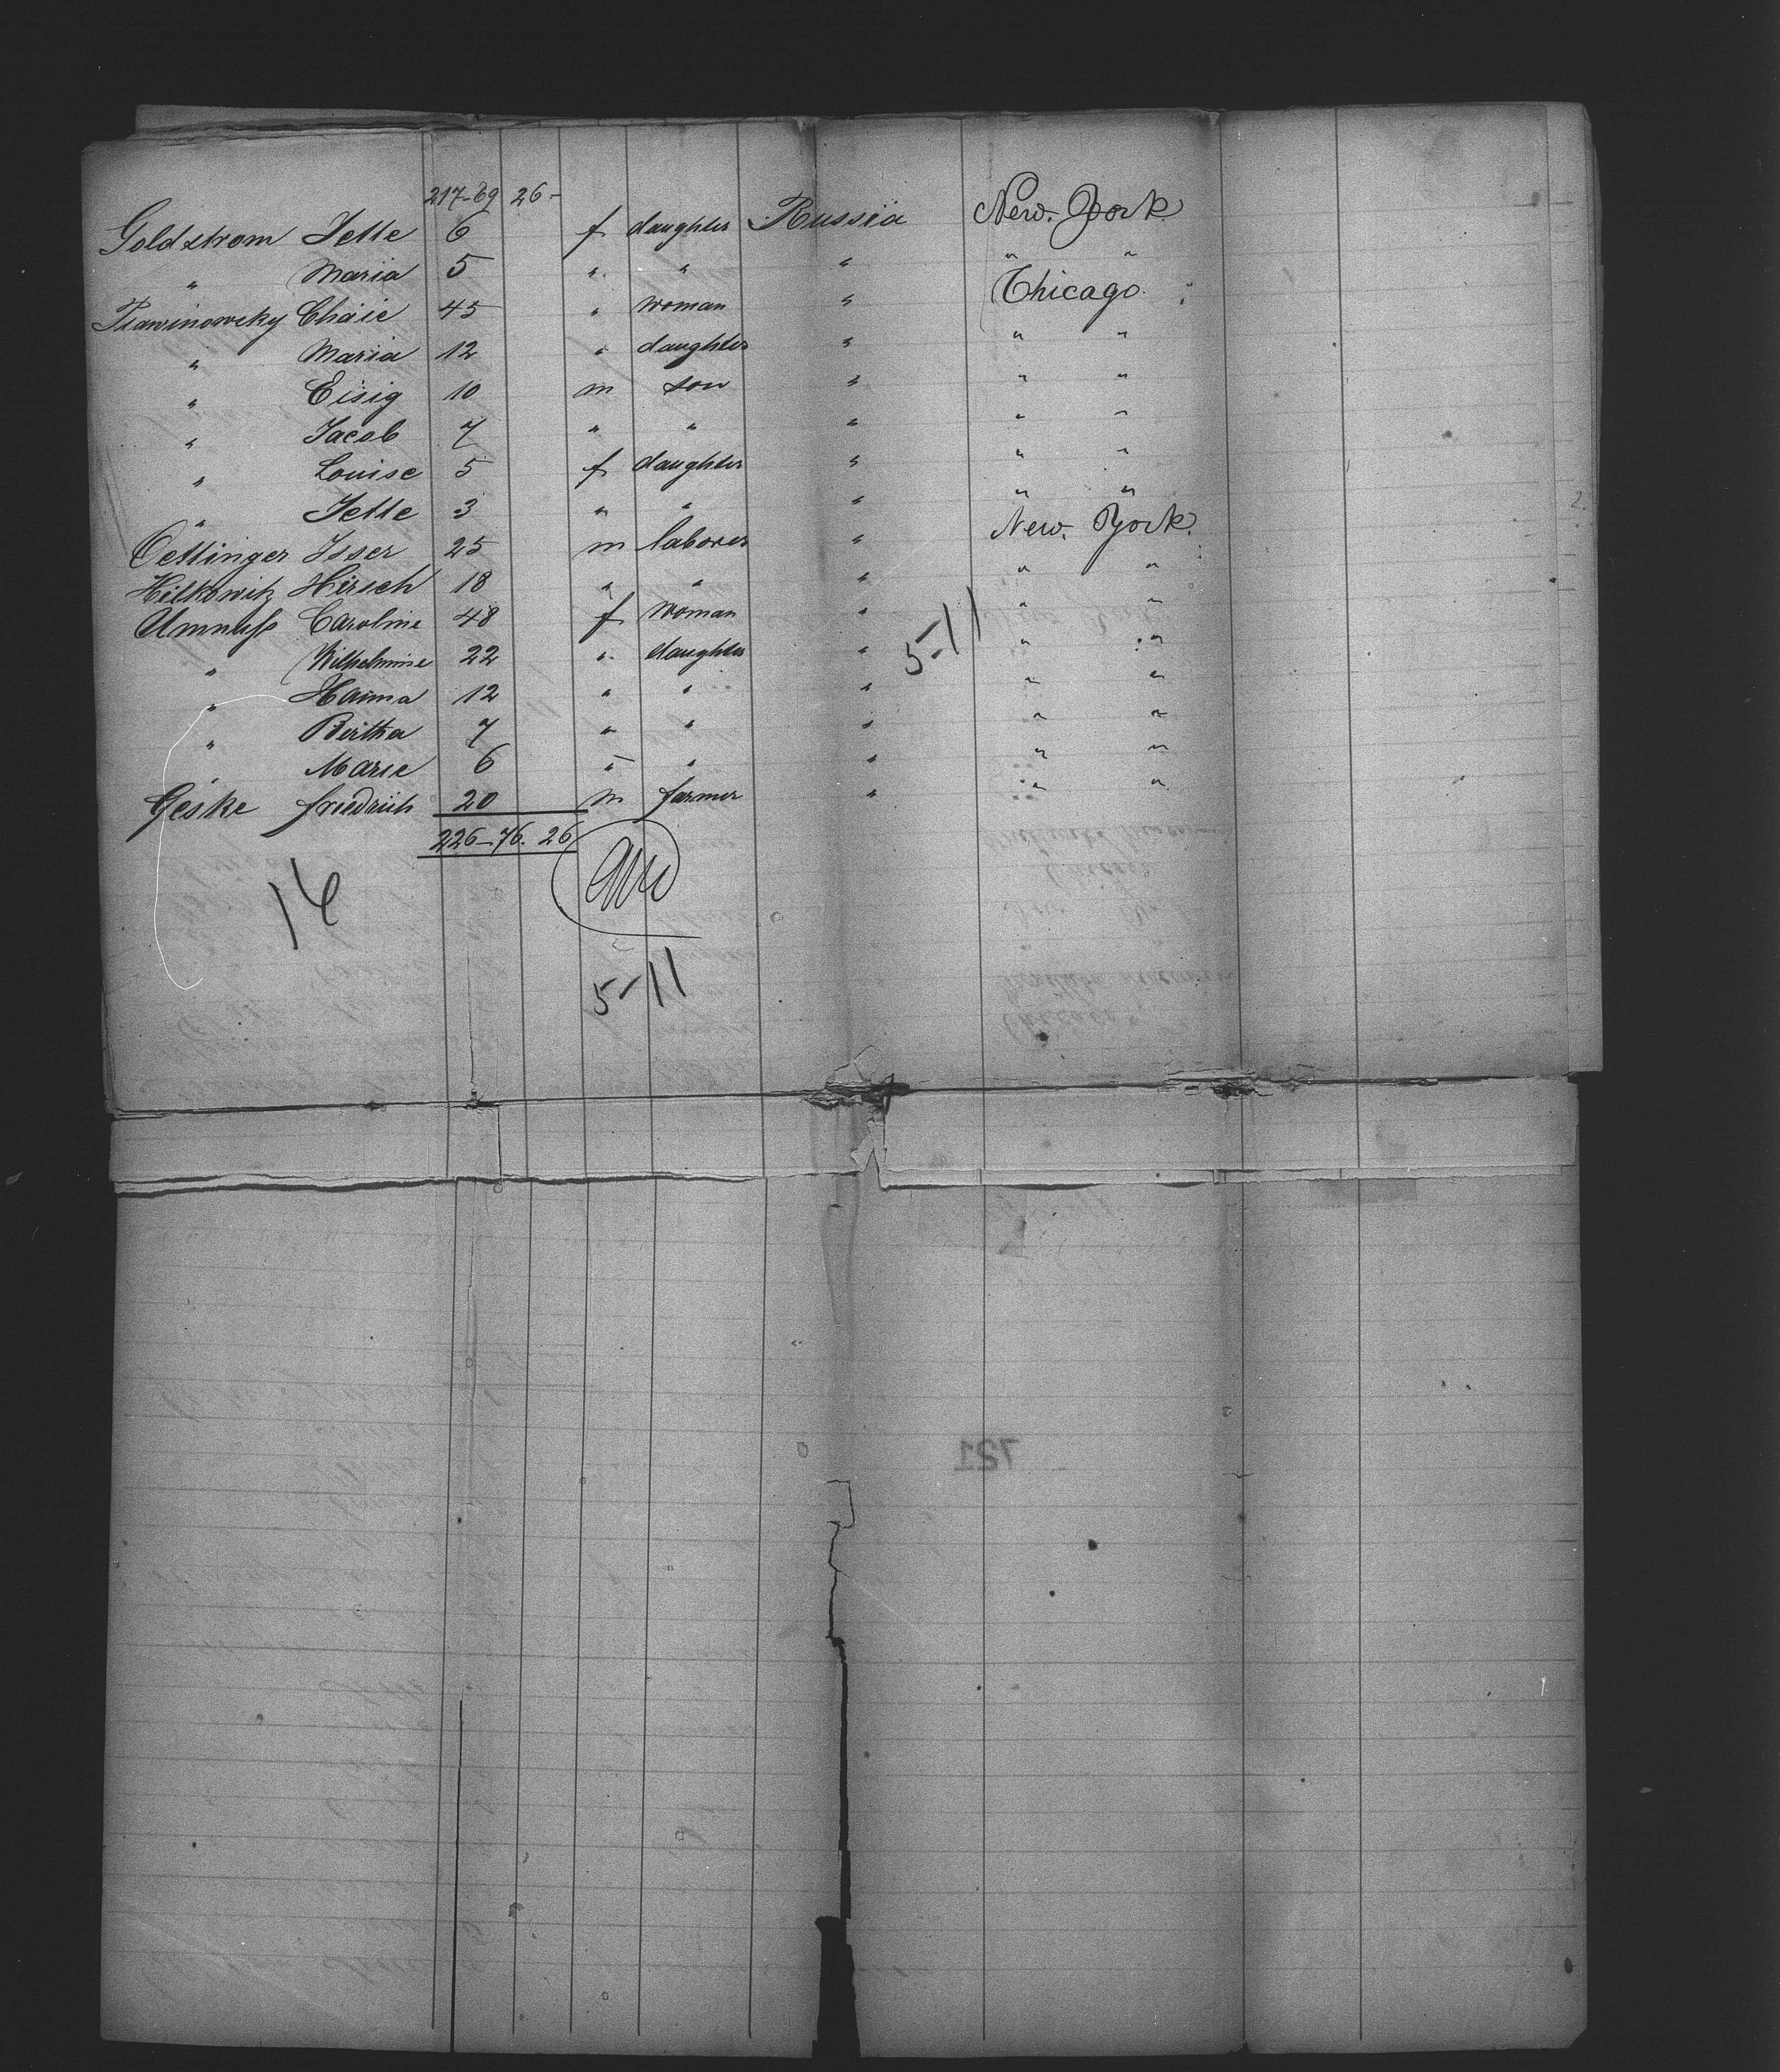 217-69 26-
Goldstrom Jette 6 f daughter Russia New-York
" Maria 5 " " " " "
Chaie 45 " woman " Chicago
" Maria 12 " daughter " " "
" Eisig 10 m son " " "
" Jacob 7 " " " " "
" Louise 5 f daughter " " "
" Jette 3 " " " " "
Oettinger Isser 25 m laborer " New-York.
Hilkowitz Hirsch 18 " " " " "
Umnuß Caroline 48 f woman " " "
" Wilhelmine 22 " daughter " " "
" Hanna 12 " " " " "
" Bertha 7 " " " " "
" Marie 6 " " " " "
Geske Friedrich 20 m farmer " " "
5-11
226-76. 26
16
5-11
121